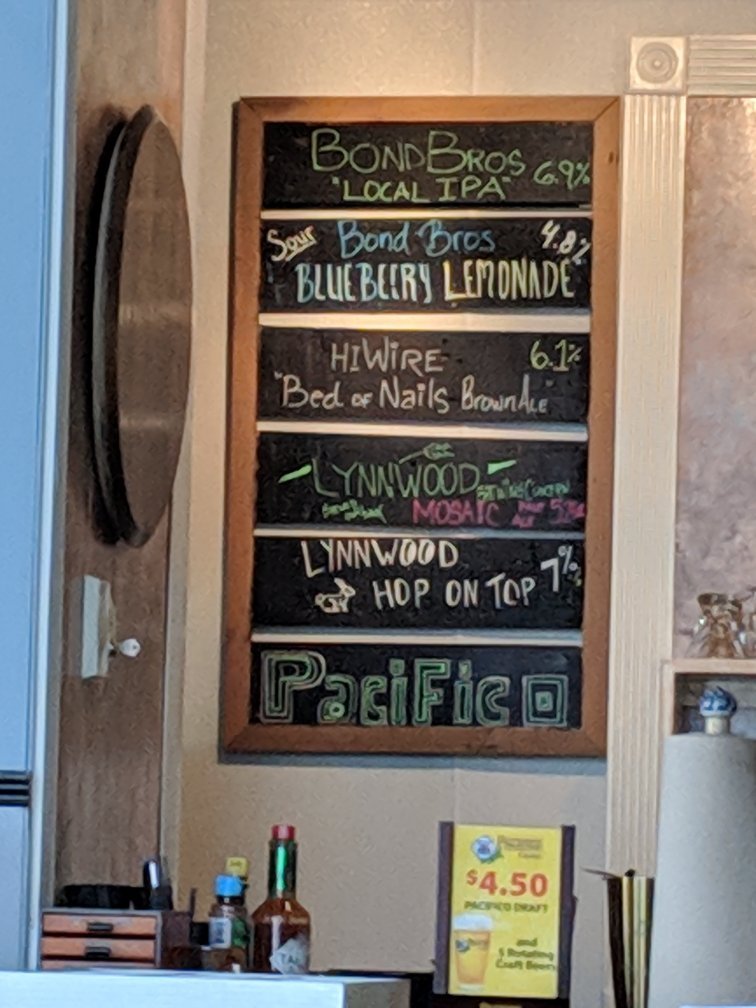 BONDBROS 6.9%
"LOCAL IPA"
Sour Bond Bros 4.8%
"BLUEBERRY LEMONADE"
HIWIRE 6.1%
"Bed of Nails Brown Ale"
LYNNWOOD
MOSAIC
LYNNWOOD 7%
HOP ON TOP
PaciFico
$4.50
PACIFICO DRAFT
and
5 Rotating
Craft Beers